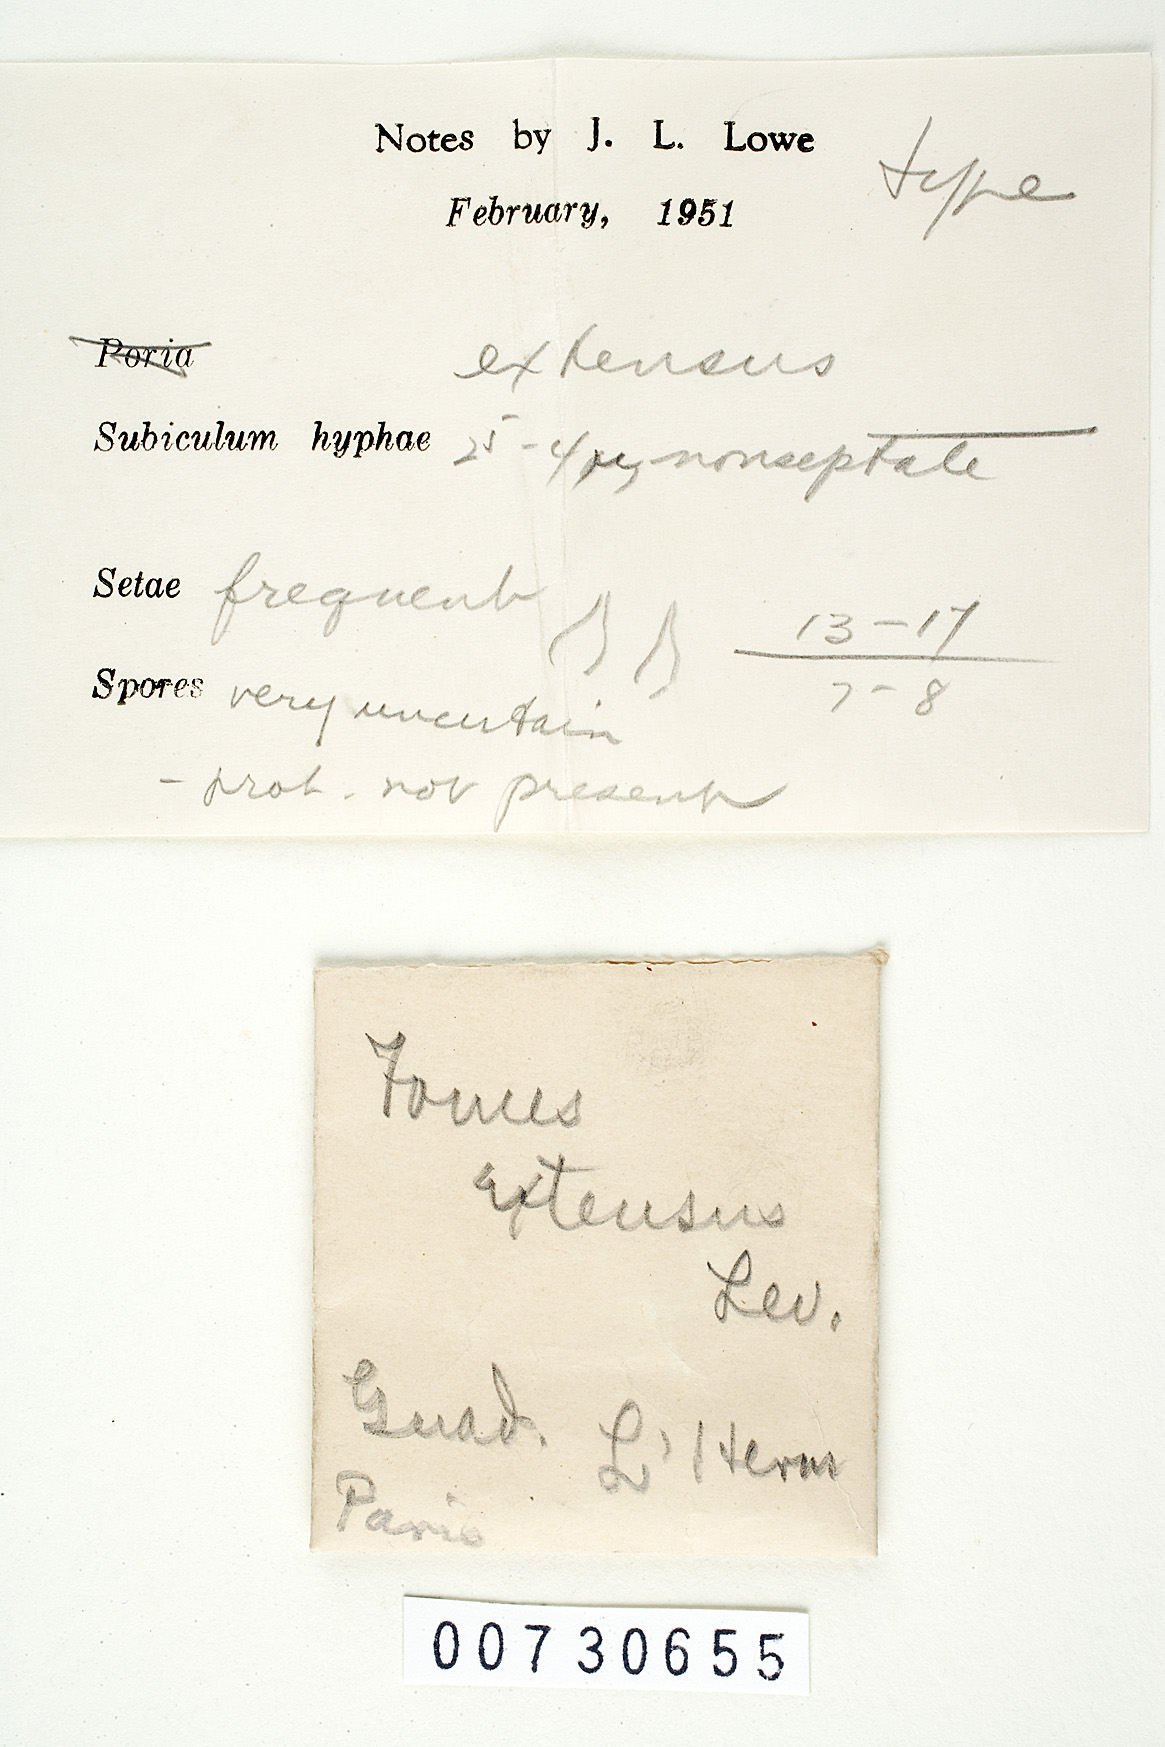 Notes by J. L. Lowe
type
February, 1951
Poria extensus
Subiculum hyphae 2⁵-4 μ, nonseptate
Setae frequent
13-17
7-8
Spores very uncertain
- prob. not present
Fomes
extensus
Lev.
Guad. L'Herm
Paris
00730655